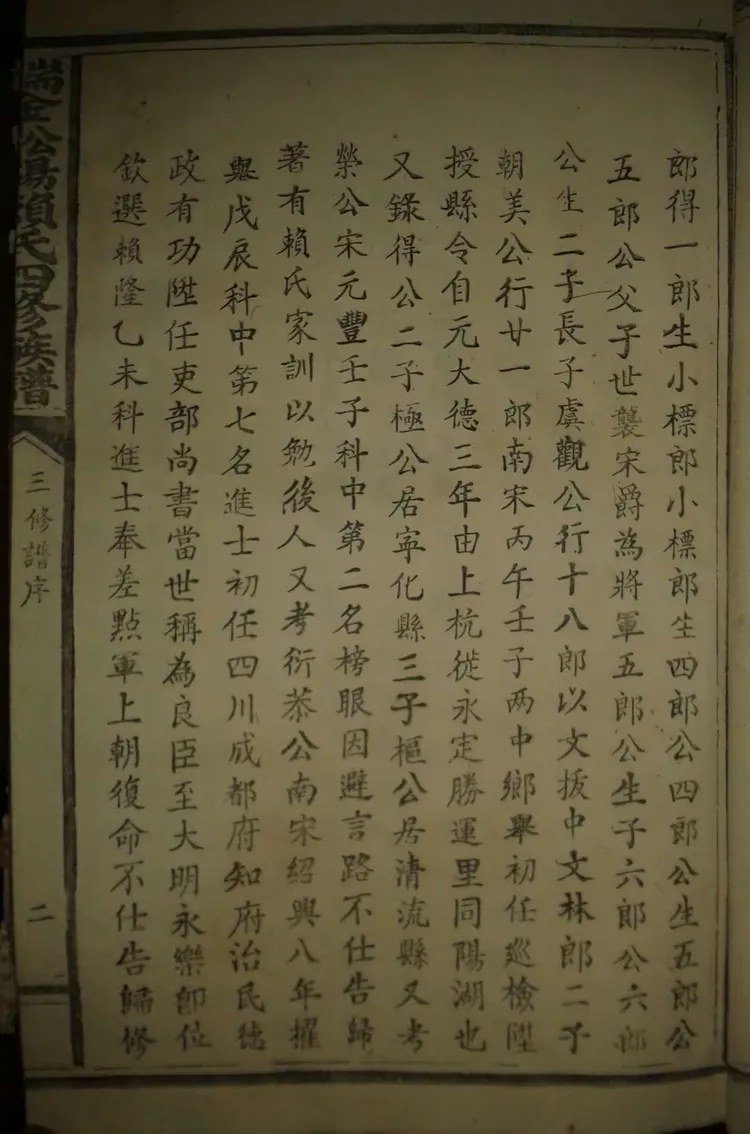 郎得一郎生小標郎小標郎生四郎公四郎公生五郎公
五郎公父子世襲宋爵為將軍五郎公生子六郎公六郎
公生二子長子虞觀公行十八郎以文拔中文林郎二子
朝美公行廿一郎南宋丙午壬子两中鄉舉初任巡檢陞
授縣令自元大德三年由上杭徙永定勝運里同陽湖也
又錄得公二子極公居寧化縣三子樞公居清流縣又考
榮公宋元豐壬子科中第二名榜眼因避言路不仕告歸
著有賴氏家訓以勉後人又考衍恭公南宋紹興八年擢
與戊辰科中第七名進士初任四川成都府知府治民德
政有功陞任吏部尚書當世稱為良臣至大明永樂卽位
欽選賴隆乙未科進士奉差點軍上朝復命不仕告歸修
瑞金松陽賴氏四修族譜
三修譜序
二